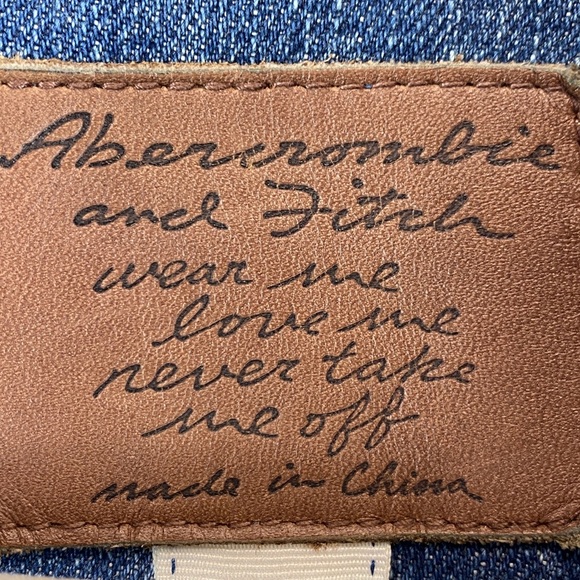 Abercrombie
and Fitch
wear me
love me
never take
me off
made in China